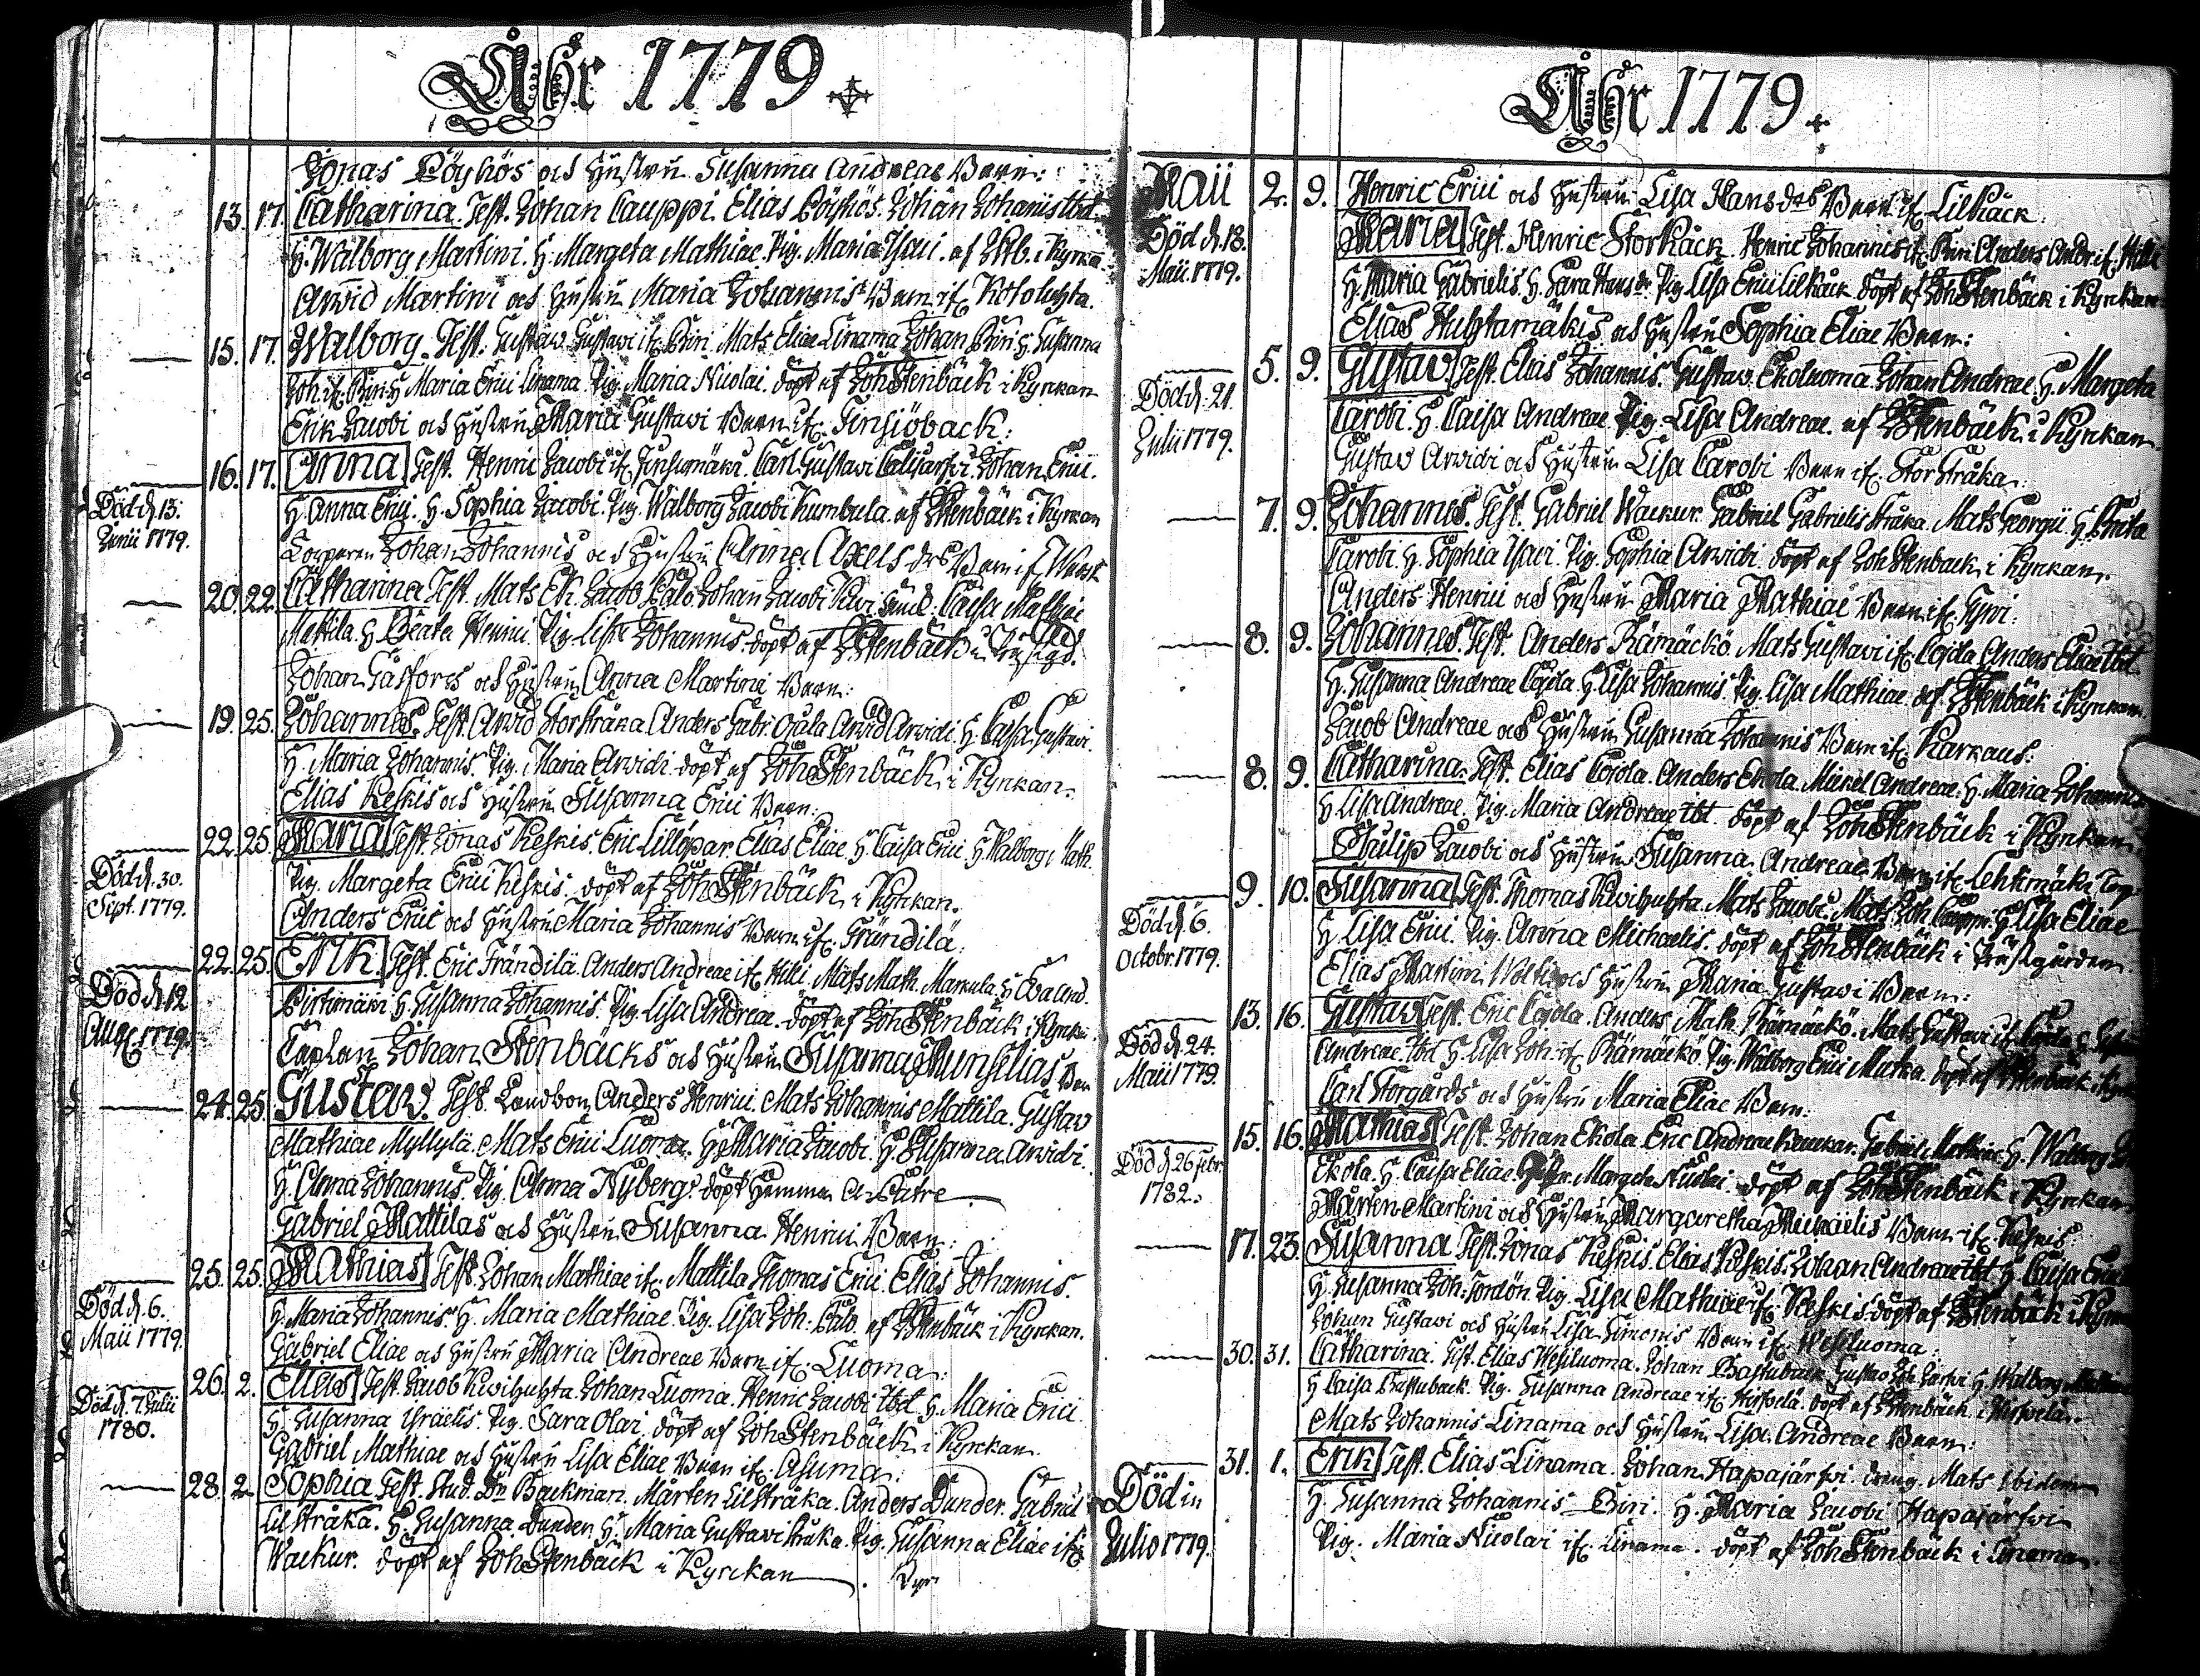 Åhr 1779
Jonas Pöyhös och Hustru Susanna Andreae Barn:
13. 17. Catharina. Test. Johan Cauppi. Elias Pöyhös. Johan Johannis ibd.
H. Walborg Martini. H. Margeta Mathiae. Pig. Maria Isaci. af i Kyrkan
Arwid Martini och Hustru Maria Johannis Barn if.
15. 17. Walborg. Test. Gustaw Gustawi if. Biri. Mats Eliae Linama Johan Biri H. Susanna
Joh. if. Biri H. Maria Erici Linama. Pig. Maria Nicolai. döpt af Joh Stenbäck i Kyrkan
Erik Jacobi och Hustru Maria Gustawi Barn if. Finsiöback:
16. 17. Anna Test. Henric Jacobi if. Carl Gustawi Johan Erici.
Död d. 13: Junii 1779.
H. Anna Erici. H. Sophia Jacobi. Pig. Walborg Jacobi Kumbula. af JStenbäck i Kyrkan
Johan Johannis och Hustru Anna Axels dr Barn if
20. 22. Catharina Test. Mats Ek. Jacob Palo Johan Jacobi H. Caisa Mathiae
Mattila. H Beata Henrici Pig. Lisa Johannis. döpt af JStenbäck i
Johan Gästfors och Hustru Anna Martini Barn:
19. 25. Johannes. Test. Arwid Storstråka Anders Gabr. Ojala Arwid Arwidi. H. Caisa Gustawi.
H. Maria Johannis. Pig. Maria Arwidi. döpt af Joh Stenbäck i Kyrkan.
Elias Keskis och Hustru Susanna Erici Barn:
22. 25. Maria Test. Jonas Keskis. Eric Lillöpar. Elias Eliae H. Caisa Erici H. Walborg Math.
Död d. 30. Sept. 1779.
Pig. Margeta Erici Keskis. döpt af Joh Stenbäck i Kyrkan.
Anders Erici och Hustru Maria Johannis Barn if. Frändilä.
22. 25. Erik. Test. Eric Frändilä. Anders Andreae if. Hilli. Mats Math. Markula H. Eva And.
Död d. 12 Aug. 1779.
H. Susanna Johannis. Pig. Lisa Andreae. döpt af Joh Stenbäck i Kyrkan.
Caplan Johan Stenbäcks och Hustru Susanna Munselias Barn
24. 25. Gustaw. Test. Landbon Anders Henrici. Mats Johannis Mattila. Gustav
Mathiae Myllylä. Mats Erici Luoma. H Maria Jacobi. H. Susanna Arwidi.
H. Anna Johannis. Pig. Anna Nyberg. döpt Hemma a Patre
Gabriel Mattilas och Hustru Susanna Henrici Barn:
25. 25. Mathias Test. Johan Mathiae if. Mattila Thomas Erici Elias Johannis.
Död d. 6. Maii 1779.
H. Maria Johannis. H. Maria Mathiae. Pig. Lisa Joh. Palo. af JStenbäck i Kyrkan.
Gabriel Eliae och Hustru Maria Andreae Barn if. Luoma:
26. 2. Elias Test. Jacob Kiwihuhta. Johan Luoma. Henric Jacobi ibd. H. Maria Erici
Död d. 7. Julii 1780.
H. Susanna Israelis. Pig. Sara Olai. döpt af Joh Stenbäck i Kyrckan.
Gabriel Mathiae och Hustru Lisa Eliae Barn if. Asuma:
28. 2. Sophia Test. Stud. Dn Backman. Mårten Lilstråka. Anders Dunder. Gabriel
Lilstråka. H. Susanna Dunder. H. Maria Gustawi Stråka. Pig. Susanna Eliae if.
Wackur. döpt af Joh Stenbäck i Kyrckan
Åhr 1779.
Maii 2. 9. Henric Erici och Hustru Lisa Hans dr Barn if. Lilkäck.
Död d. 18. Maii 1779.
Maria Test. Henric Storkäck. Henric Johannis if. Biri Anders Andr. if. Hilli
H. Maria Gabrielis. H. Sara Hans dr. Pig. Lisa Erici Lilkäck. döpt af Joh Stenbäck i Kyrkan
Elias Huhtamäkis och Hustru Sophia Eliae Barn:
5. 9. Gustav Test. Elias Johannis. Gustav Ekoluoma. Johan Andreae H. Margeta
Död d. 21. Julii 1779.
Caroli. H. Caisa Andreae Pig. Lisa Andreae. af JStenbäck i Kyrkan
Gustav Arwidi och Hustru Lisa Caroli Barn if. Storstråka.
7. 9. Johannes. Test. Gabriel Wackur. Gabriel Gabrielis Stråka. Mats Georgii H. Greta
Caroli. H. Sophia Isaci Pig. Sophia Arwidi. döpt af Joh Stenbäck i Kyrkan.
Anders Henrici och Hustru Maria Mathiae Barn if.
8. 9. Johannes. Test. Anders Rämäckö. Mats Gustawi if. Cojola Anders Eliae ibd.
H. Susanna Andreae Cojola. H Lisa Johannis. Pig. Lisa Mathiae. af JStenbäck i Kyrkan.
Jacob Andreae och Hustru Susanna Johannis Barn if. Karkaus.
8. 9. Catharina. Test. Elias Cojola. Anders Ekola. Mickel Andreae. H. Maria Johannis
H. Lisa Andreae. Pig. Maria Andreae ibd. döpt af Joh Stenbäck i Kyrkan.
Philip Jacobi och Hustru Susanna Andreae Barn if. Lehtimäki Torp
9. 10. Susanna Test. Thomas Kiwihuhta. Mats Jacobi. Mats Joh. Cauppi. H Lisa Eliae
Död d. 6. Octobr. 1779.
H. Lisa Erici. Pig. Anna Michaelis. döpt af Joh Stenbäck i Prästgården.
Elias Martini och Hustru Maria Gustawi Barn:
13. 16. Gustaw Test. Eric Cojola. Anders Math. Rämäckö. Mats Gustawi if. Cojola
Död d. 24. Maii 1779.
Andreae ibd H. Lisa Joh. if. Rämäckö. Pig. Walborg Erici Matka. döpt af JStenbäck i Kyrk
Carl Storgårds och Hustru Maria Eliae Barn:
15. 16. Mathias Test. Johan Ekola. Eric Andreae Gabriel Mathiae H. Walborg
Död d. 26 Febr. 1782.
Ekola. H. Caisa Eliae Margeta Nicolai. döpt af Joh Stenbäck i Kyrckan
Mårten Martini och Hustru Margaretha Michaelis Barn if. Keskis:
17. 23. Susanna Test. Jonas Keskis. Elias Keskis. Johan Andreae ibd H Caisa Erici
H. Susanna Joh. Pig. Lisa Mathiae if. Keskis. döpt af JStenbäck i Kyrk
Johan Gustawi och Hustru Lisa Simonis Barn if. Wesiluoma:
30. 31. Catharina. Test. Elias Wesiluoma. Johan Bastuback. Gustav Joh. H. Walborg
H Caisa Bastuback. Pig. Susanna Andreae if. döpt af JStenbäck i
Mats Johannis Linama och Hustru Lisa Andreae Barn:
31. 1. Erik Test. Elias Linama. Johan Hapajärfwi. dräng Mats ibidem
Död in Julio 1779.
H. Susanna Johannis Biri. H. Maria Jacobi Hapajärfwi
Pig. Maria Nicolai if. Linama. döpt af Joh Stenbäck i Linama.